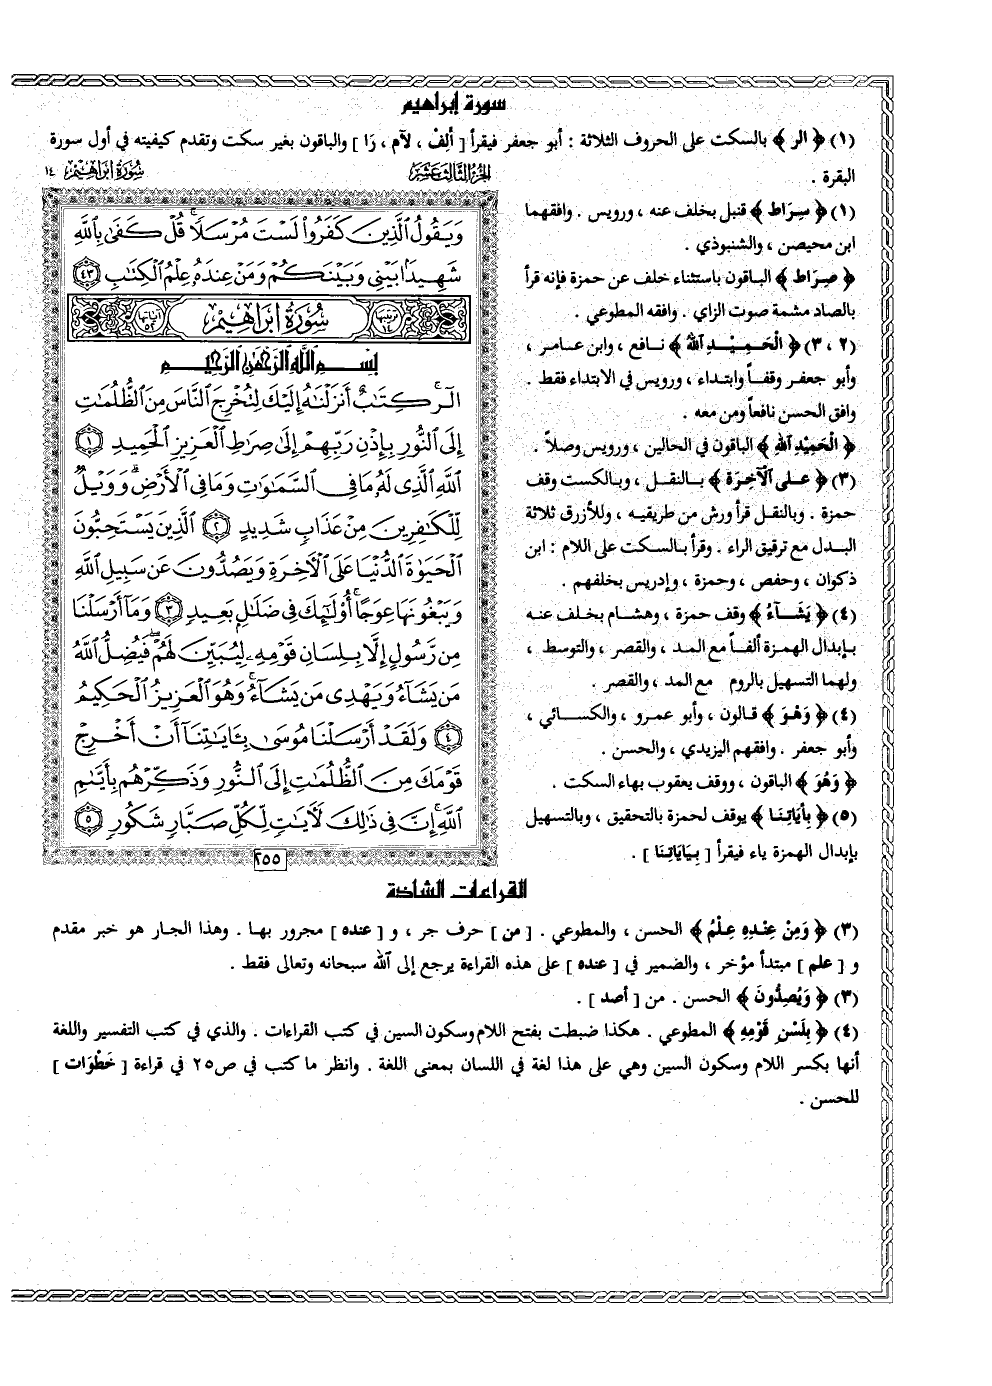 سورة إبراهيم
(١) ﴿ الر ﴾ بالسكت على الحروف الثلاثة : أبو جعفر فيقرأ [ ألِفْ ، لآم ، رَا ] والباقون بغير سكت وتقدم كيفيته في أول سورة
البقرة .
(١) ﴿ سِرَاط ﴾ قنبل بخلف عنه ، ورويس . وافقهما
ابن محيصن ، والشنبوذي .
﴿ صِرَاط ﴾ الباقون باستثناء خلف عن حمزة فإنه قرأ
بالصاد مشمة صوت الزاي . وافقه المطوعي .
(٢ ، ٣) ﴿ الْحَمِيْدِ اللهُ ﴾ نافع ، وابن عامر ،
وأبو جعفر وقفاً وابتداء ، ورويس في الابتداء فقط .
وافق الحسن نافعاً ومن معه .
﴿ الْحَمِيْدِ اللهِ ﴾ الباقون في الحالين ، ورويس وصلاً .
(٣) ﴿ على الآخِرَة ﴾ بالنقل ، وبالكست وقف
حمزة . وبالنقل قرأ ورش من طريقيه ، وللأزرق ثلاثة
البدل مع ترقيق الراء . وقرأ بالسكت على اللام : ابن
ذكوان ، وحفص ، وحمزة ، وإدريس بخلفهم .
(٤) ﴿ يَشَآءُ ﴾ وقف حمزة ، وهشام بخلف عنه
بإبدال الهمزة ألفاً مع المد ، والقصر ، والتوسط ،
ولهما التسهيل بالروم مع المد ، والقصر .
(٤) ﴿ وَهْوَ ﴾ قالون ، وأبو عمرو ، والكسائي ،
وأبو جعفر . وافقهم اليزيدي ، والحسن .
﴿ وَهُوَ ﴾ الباقون ، ووقف يعقوب بهاء السكت .
(٥) ﴿ بِآيَاتِنَا ﴾ يوقف لحمزة بالتحقيق ، وبالتسهيل
بإبدال الهمزة ياء فيقرأ [ بِيَايَاتِنَا ] .
الجزء الثالث عشر
سورة إبراهيم ١٤
وَيَقُولُ ٱلَّذِينَ كَفَرُواْ لَسْتَ مُرْسَلًاۚ قُلْ كَفَىٰ بِٱللَّهِ
شَهِيدًۢا بَيْنِي وَبَيْنَكُمْ وَمَنْ عِندَهُۥ عِلْمُ ٱلْكِتَٰبِ ٤٣
ترتيبها ١٤ سُورَةُ إِبْرَاهِيمَ آياتها ٥٢
بِسْمِ ٱللَّهِ ٱلرَّحْمَٰنِ ٱلرَّحِيمِ
الٓرۚ كِتَٰبٌ أَنزَلْنَٰهُ إِلَيْكَ لِتُخْرِجَ ٱلنَّاسَ مِنَ ٱلظُّلُمَٰتِ
إِلَى ٱلنُّورِ بِإِذْنِ رَبِّهِمْ إِلَىٰ صِرَٰطِ ٱلْعَزِيزِ ٱلْحَمِيدِ ١
ٱللَّهِ ٱلَّذِي لَهُۥ مَا فِي ٱلسَّمَٰوَٰتِ وَمَا فِي ٱلْأَرْضِۗ وَوَيْلٌ
لِّلْكَٰفِرِينَ مِنْ عَذَابٍ شَدِيدٍ ٢ ٱلَّذِينَ يَسْتَحِبُّونَ
ٱلْحَيَوٰةَ ٱلدُّنْيَا عَلَى ٱلْأٓخِرَةِ وَيَصُدُّونَ عَن سَبِيلِ ٱللَّهِ
وَيَبْغُونَهَا عِوَجًاۚ أُوْلَٰٓئِكَ فِي ضَلَٰلٍۭ بَعِيدٍ ٣ وَمَآ أَرْسَلْنَا
مِن رَّسُولٍ إِلَّا بِلِسَانِ قَوْمِهِۦ لِيُبَيِّنَ لَهُمْۖ فَيُضِلُّ ٱللَّهُ
مَن يَشَآءُ وَيَهْدِي مَن يَشَآءُۚ وَهُوَ ٱلْعَزِيزُ ٱلْحَكِيمُ
٤ وَلَقَدْ أَرْسَلْنَا مُوسَىٰ بِـَٔايَٰتِنَآ أَنْ أَخْرِجْ
قَوْمَكَ مِنَ ٱلظُّلُمَٰتِ إِلَى ٱلنُّورِ وَذَكِّرْهُم بِأَيَّىٰمِ
ٱللَّهِۚ إِنَّ فِي ذَٰلِكَ لَأٓيَٰتٍ لِّكُلِّ صَبَّارٍ شَكُورٍ ٥
٢٥٥
القراءات الشاذة
(٣) ﴿ وَمِنْ عِنْدِهِ عِلْمُ ﴾ الحسن ، والمطوعي . [ من ] حرف جر ، و [ عنده ] مجرور بها . وهذا الجار هو خبر مقدم
و [ علم ] مبتدأ مؤخر ، والضمير في [ عنده ] على هذه القراءة يرجع إلى الله سبحانه وتعالى فقط .
(٣) ﴿ وَيُصِدُّونَ ﴾ الحسن . من [ أصد ] .
(٤) ﴿ بِلَسْنِ قَوْمِهِ ﴾ المطوعي . هكذا ضبطت بفتح اللام وسكون السين في كتب القراءات . والذي في كتب التفسير واللغة
أنها بكسر اللام وسكون السين وهي على هذا لغة في اللسان بمعنى اللغة . وانظر ما كتب في ص٢٥ في قراءة [ خَطْوَات ]
للحسن .